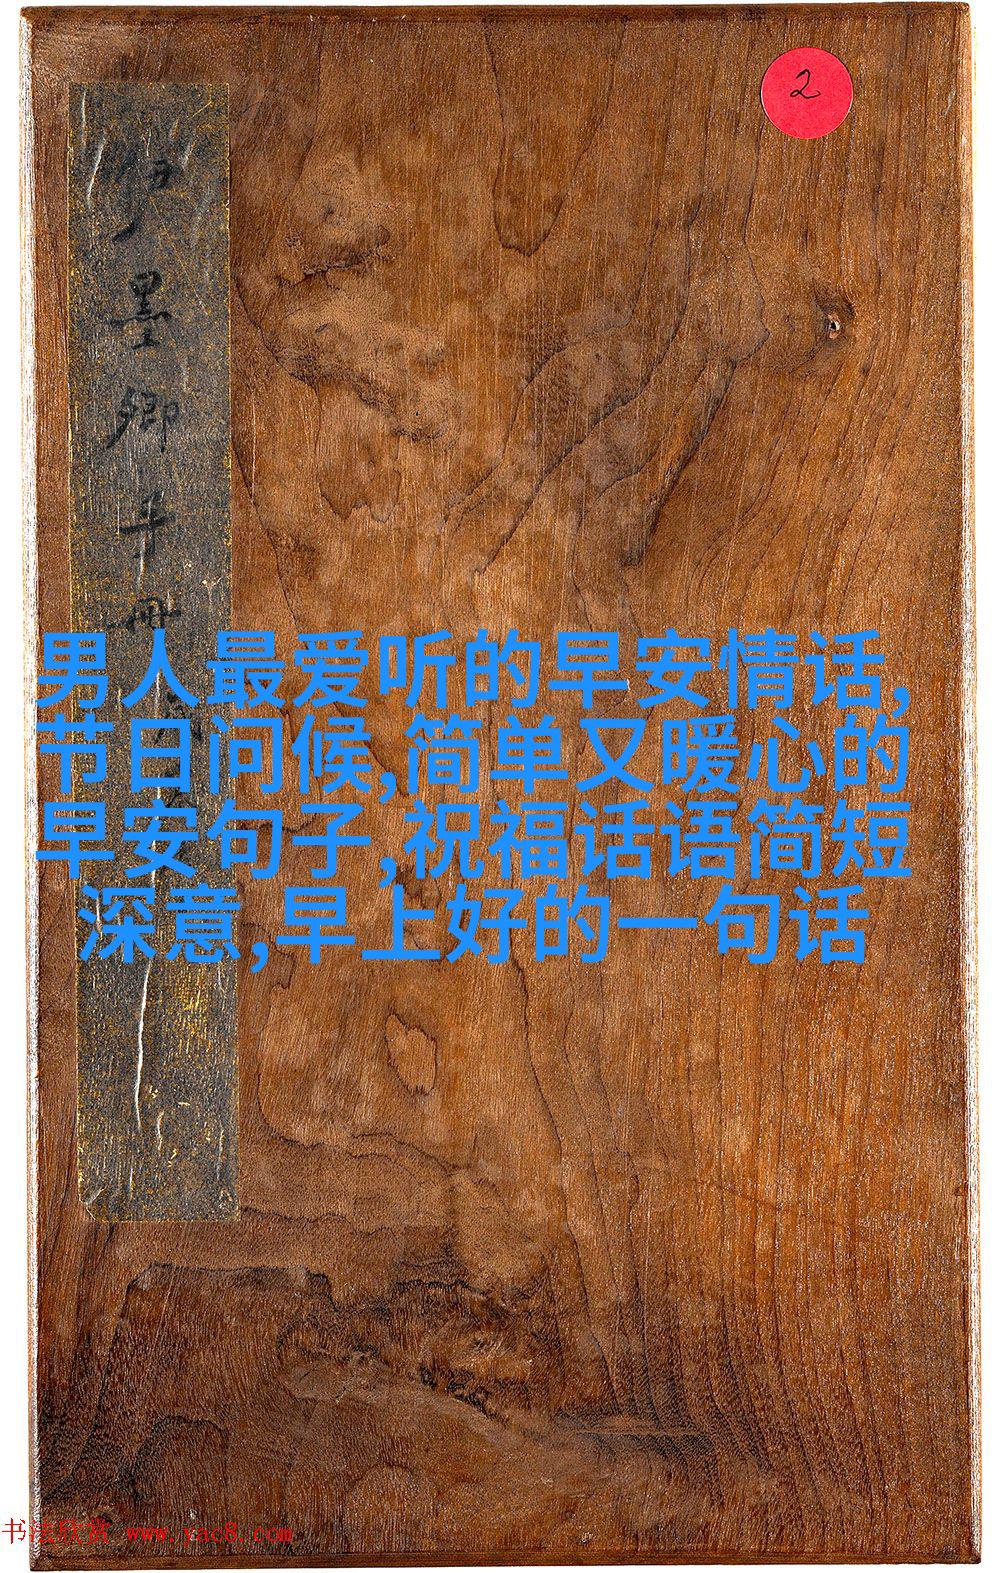 2
墨卿手冊
男人最爱听的早安情话,
节日问候,简单又暖心的
早安句子,祝福话语简短
深意,早上好的一句话
书法欣赏 www.yac8.com